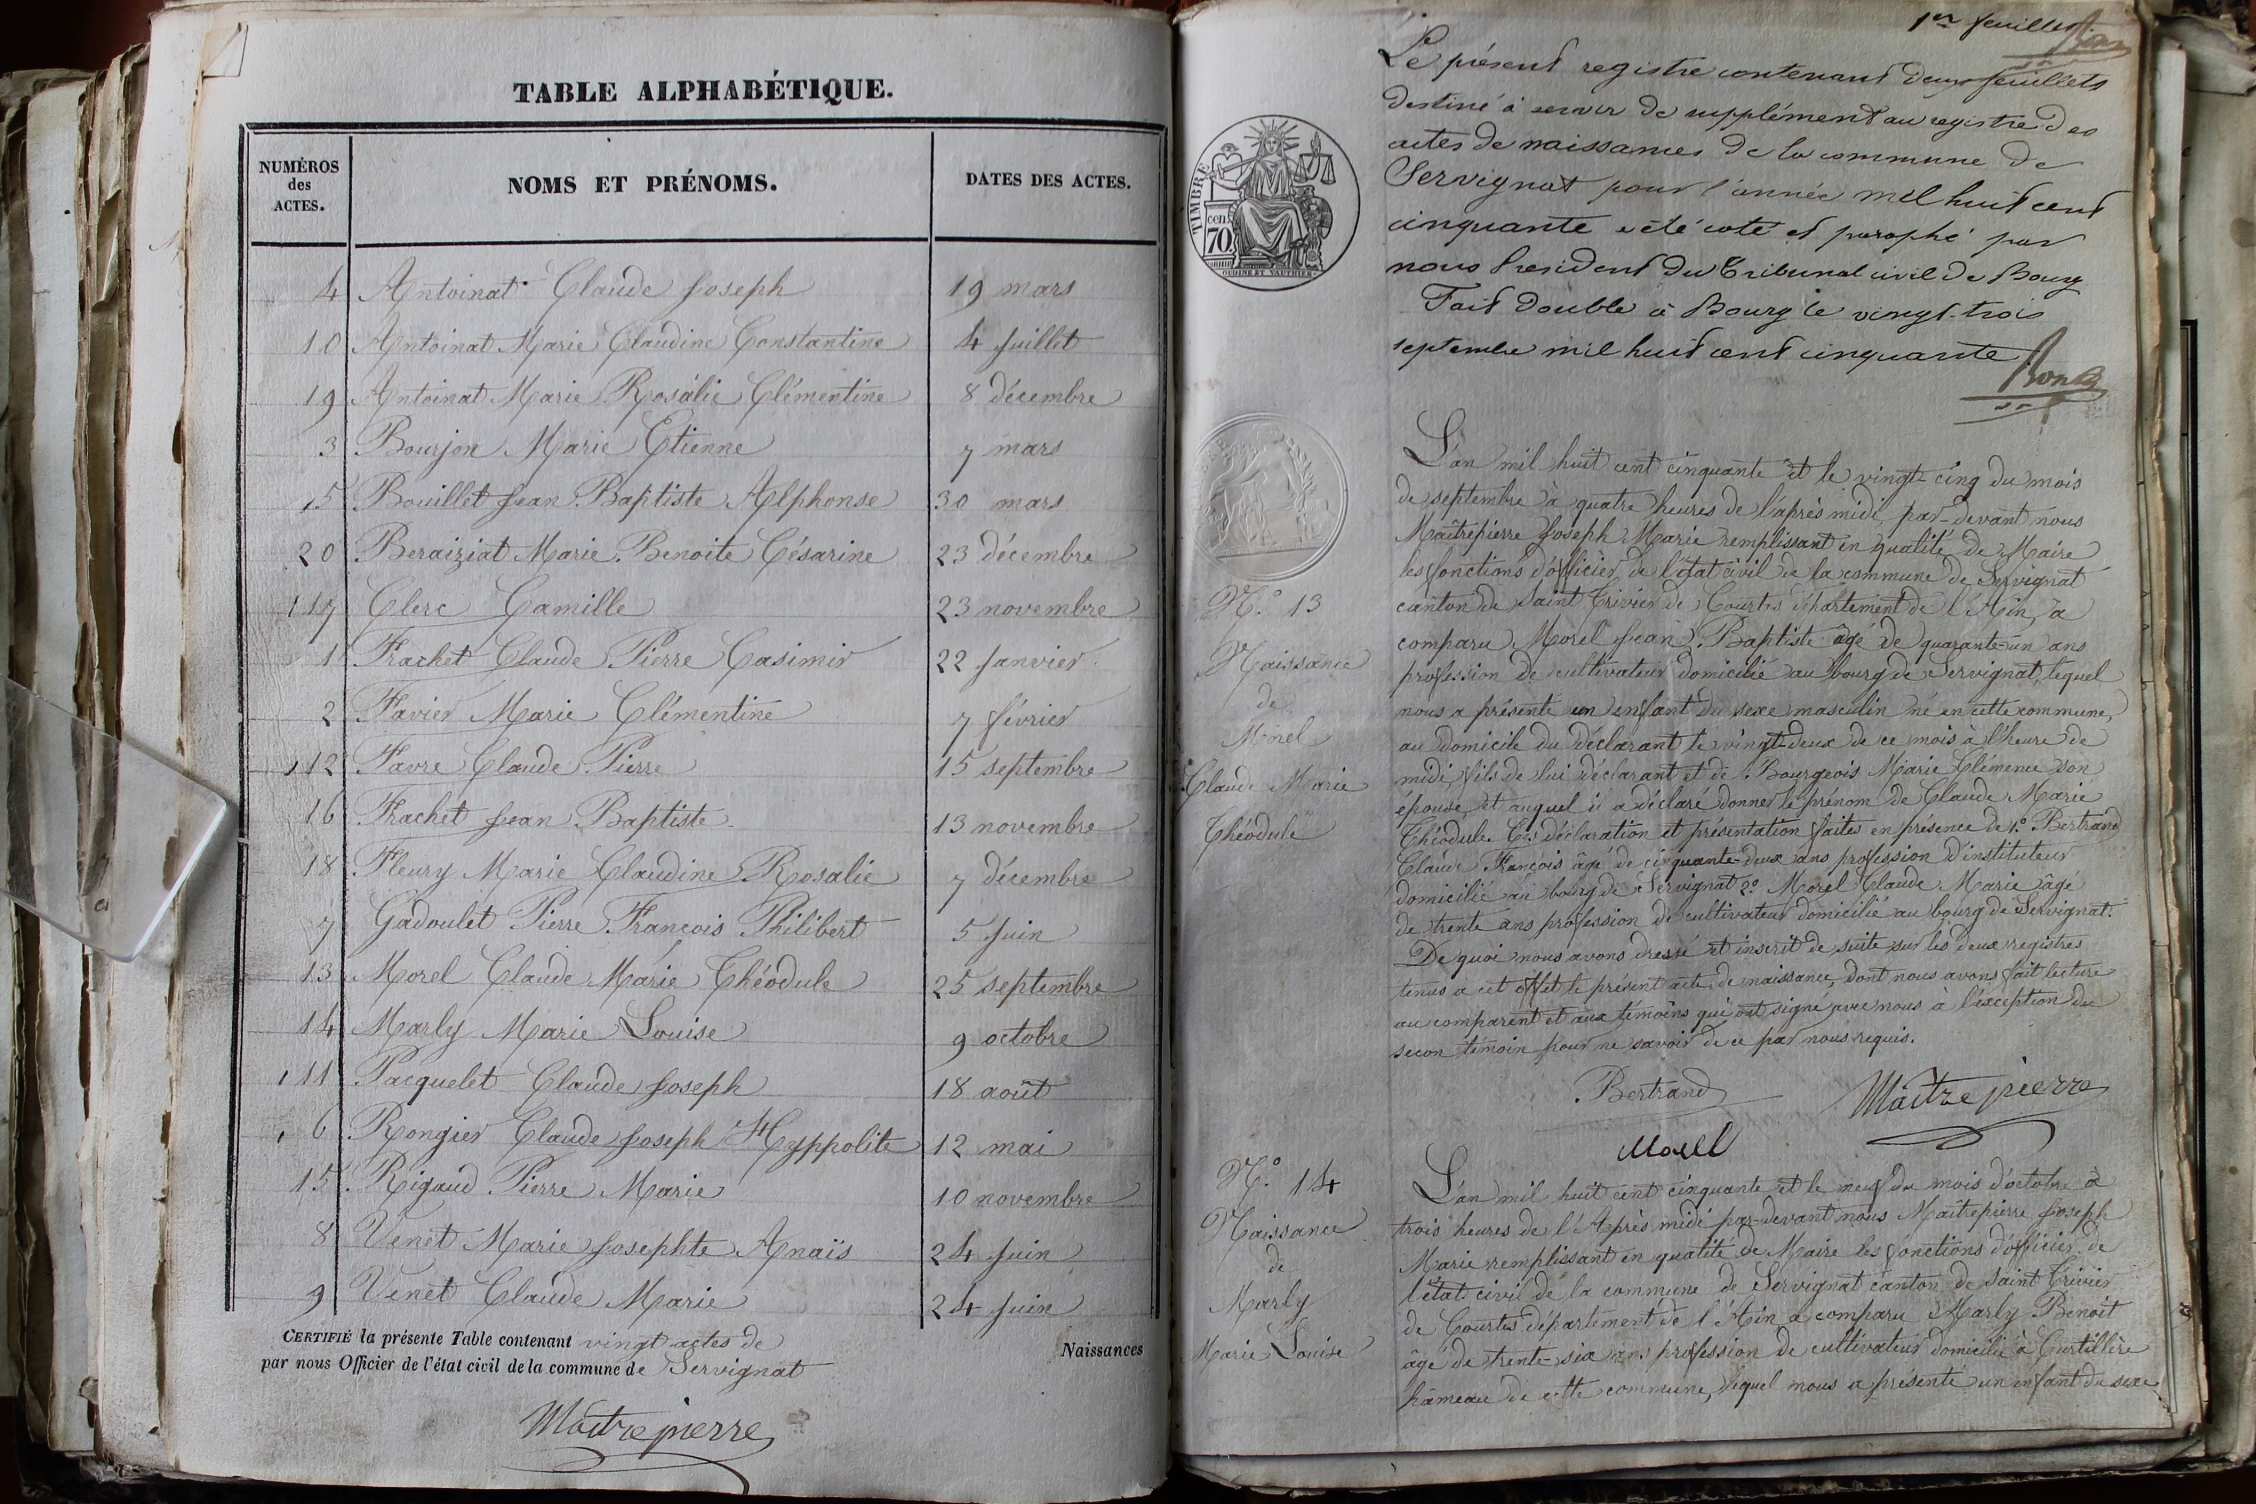 TABLE ALPHABÉTIQUE.
NUMÉROS des ACTES. NOMS ET PRÉNOMS. DATES DES ACTES.
4 Antoinat Claude Joseph 19 mars
10 Antoinat Marie Claudine Constantine 4 Juillet
19 Antoinat Marie Rosalie Clémentine 8 décembre
3 Bourjon Marie Etienne 7 mars
5 Bouillet Jean Baptiste Alphonse 30 mars
20 Beraiziat Marie Benoite Césarine 23 décembre
17 Clerc Camille 23 novembre
1 Frachet Claude Pierre Casimir 22 Janvier
2 Favier Marie Clémentine 7 février
12 Favre Claude Pierre 15 septembre
16 Frachet Jean Baptiste 13 novembre
18 Fleury Marie Claudine Rosalie 7 décembre
7 Gadoulet Pierre François Philibert 5 Juin
13 Morel Claude Marie Théodule 25 septembre
14 Marly Marie Louise 9 octobre
11 Pacquelet Claude Joseph 18 août
6 Rongier Claude Joseph Hyppolite 12 mai
15 Rigaud Pierre Marie 10 novembre
8 Venet Marie Josephte Anaïs 24 Juin
9 Venet Claude Marie 24 Juin
CERTIFIÉ la présente Table contenant vingt actes de Naissances
par nous Officier de l'état civil de la commune de Servignat
Maitrepierre
1er feuillet
Le présent registre contenant deux feuillets
destiné à servir de supplément au registre des
actes de naissances de la commune de
Servignat pour l'année mil huit cent
cinquante a été coté et paraphé par
nous Président du Tribunal civil de Bourg
Fait double à Bourg le vingt-trois
septembre mil huit cent cinquante
TIMBRE
70 cen.
OUDINE ET VAUTHIER
N.o 13
Naissance
de
Morel
Claude Marie
Théodule
L'an mil huit cent cinquante et le vingt-cinq du mois
de septembre à quatre heures de l'après midi, par-devant nous
Maîtrepierre Joseph Marie remplissant en qualité de Maire
les fonctions d'officier de l'état civil de la commune de Servignat
canton de Saint Trivier de Courtes département de l'Ain, a
comparu Morel Jean Baptiste âgé de quarante-un ans
profession de cultivateur domicilié au bourg de Servignat, lequel
nous a présenté un enfant du sexe masculin né en cette commune,
au domicile du déclarant le vingt-deux de ce mois à l'heure de
midi, fils de lui déclarant et de Bourgeois Marie Clémence son
épouse, et auquel il a déclaré donner le prénom de Claude Marie
Théodule. Ces déclaration et présentation faites en présence de 1.o Bertrand
Claude François âgé de cinquante-deux ans profession d'instituteur
domicilié au bourg de Servignat 2.o Morel Claude Marie âgé
de trente ans profession de cultivateur domicilié au bourg de Servignat.
De quoi nous avons dressé et inscrit de suite sur les deux registres
tenus a cet effet le présent acte de naissance, dont nous avons fait lecture
au comparent et aux témoins qui ont signé avec nous à l'exception du
secon témoin pour ne savoir de ce par nous requis.
Bertrand Maitrepierre
Morel
N.o 14
Naissance
de
Marly
Marie Louise
L'an mil huit cent cinquante et le neuf du mois d'octobre à
trois heures de l'Après midi par-devant nous Maîtepierre Joseph
Marie remplissant en qualité de Maire les fonctions d'officier de
l'état civil de la commune de Servignat canton de Saint Trivier
de Courtes département de l'Ain a comparu Marly Benoit
âgé de trente-six ans profession de cultivateur domicilié à Curtillère
hameau de cette commune, lequel nous a présenté un enfant du sexe